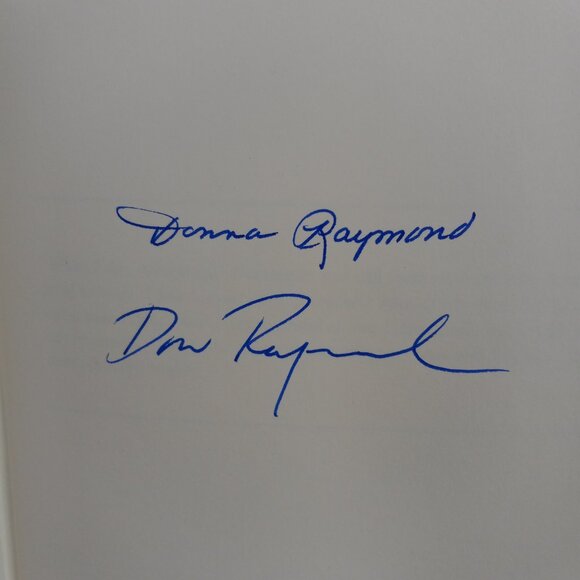 Donna Raymond
Don Raymond